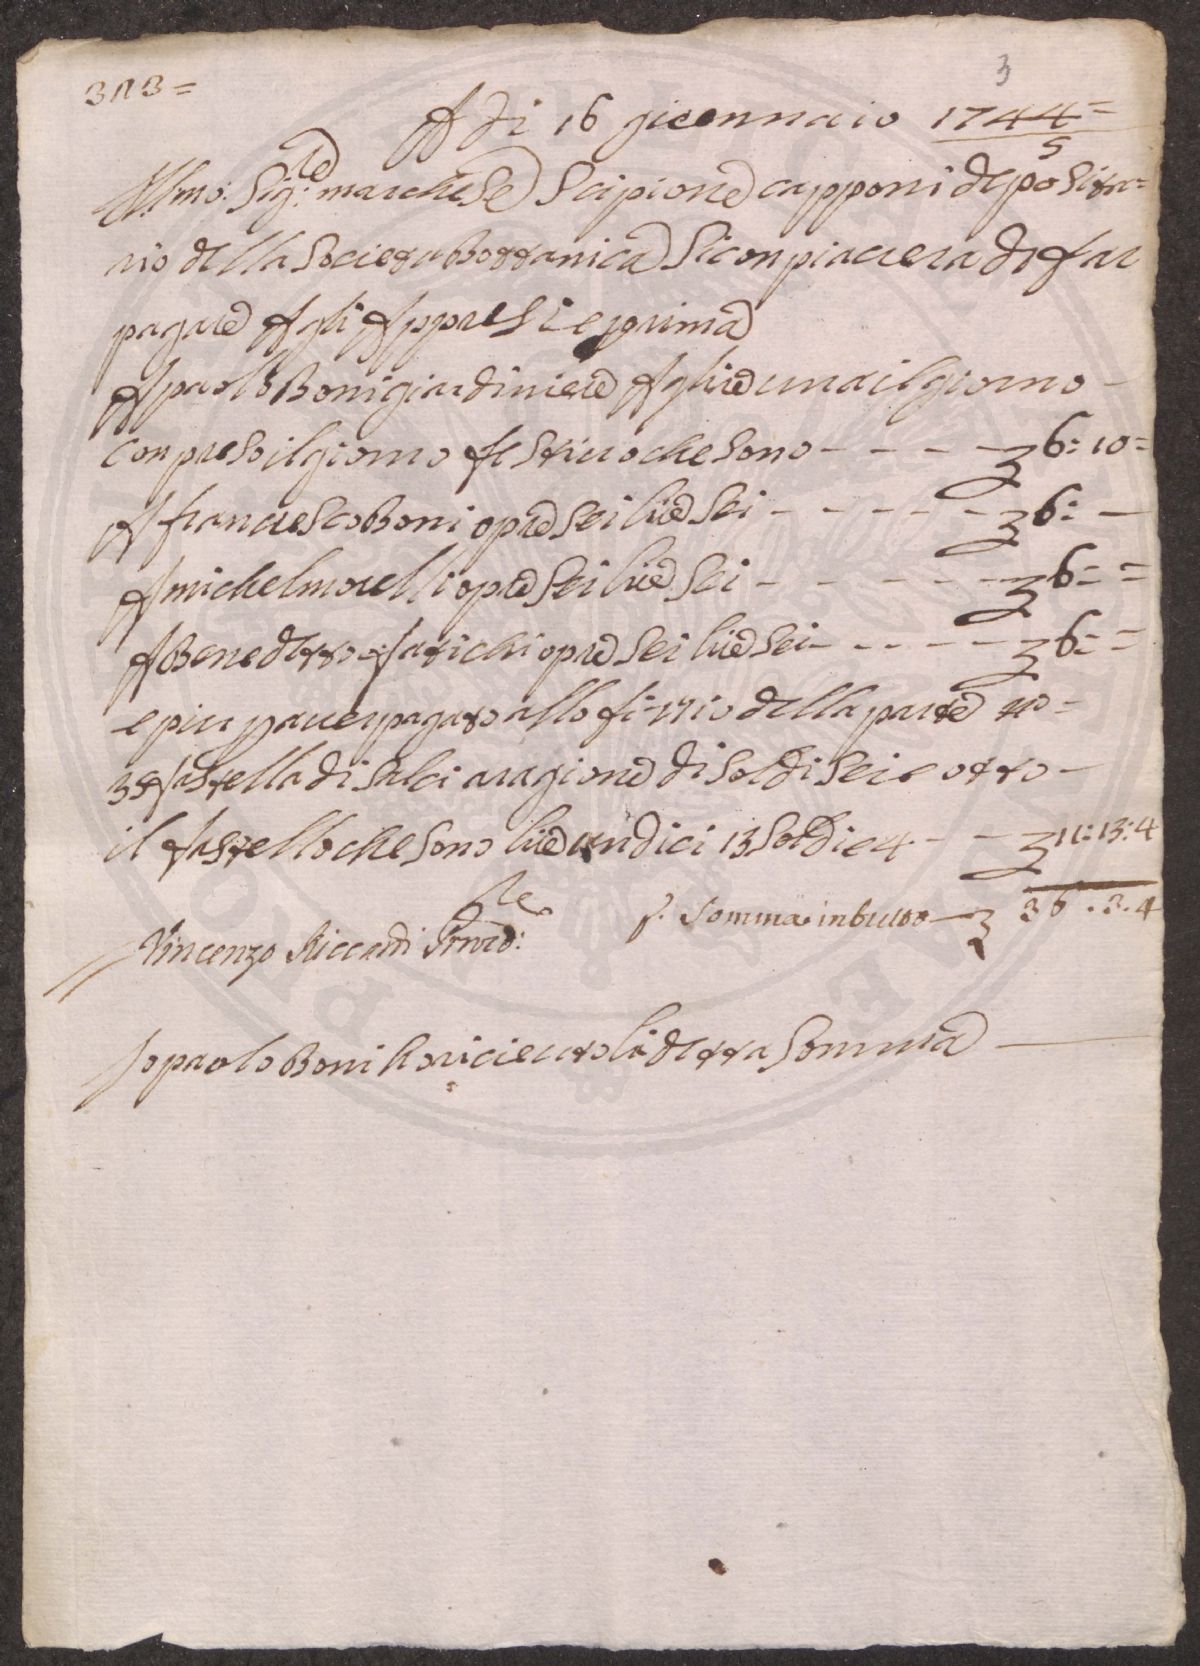 3
313=
A di 16 gieennaio 1744=
5
Illmo: Sig:re marchese Scipione capponi deposita=
rio della Societa Bottanica Si conpiaciera di far
pagare A gli Appresi e prima
A paolo Boni giardiniere A glire una il giorno -
Conpreso il giorno festivo che sono - - - - - 6: 10=
A franciesco Boni opre sei lire sei - - - - - 6: —
A michel morelli opre sei lire sei - - - - - 6= =
A Benedetto fatichi opre sei lire sei - - - - - 6= =
e piu p aver pagato allo della parte
35 fastella di salci a ragione di soldi sei e otto -
il fastello che sono lire undici 13 soldi e 4 - - 11: 13: 4
Somma in tutto 36 . 3. 4
Vincenzo Riccardi Provre:
Io paolo Boni ho riceuto la detta Somma